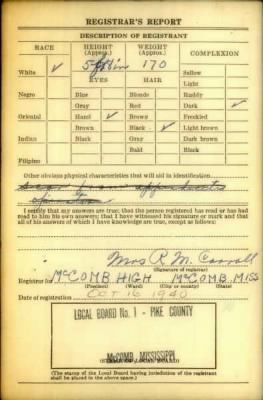 REGISTRAR'S REPORT
DESCRIPTION OF REGISTRANT
RACE HEIGHT (Approx.) WEIGHT (Approx.) COMPLEXION
White ✓ 170 Sallow
EYES HAIR Light
Negro Blue Blonde Ruddy
Gray Red Dark ✓
Oriental Hazel ✓ Brown Freckled
Brown Black ✓ Light brown
Indian Black Gray Dark brown
Bald Black
Filipino
Other obvious physical characteristics that will aid in identification
Scar from
I certify that my answers are true; that the person registered has read or has had
read to him his own answers; that I have witnessed his signature or mark and that
all of his answers of which I have knowledge are true, except as follows:
Mrs R. M. Carroll
(Signature of registrar)
Registrar for McCOMB HIGH McCOMB, MISS
(Precinct) (Ward) (City or county) (State)
Date of registration OCT 16 1940
LOCAL BOARD No. 1 - PIKE COUNTY
McCOMB, MISSISSIPPI
(The stamp of the Local Board having jurisdiction of the registrant
shall be placed in the above space.)